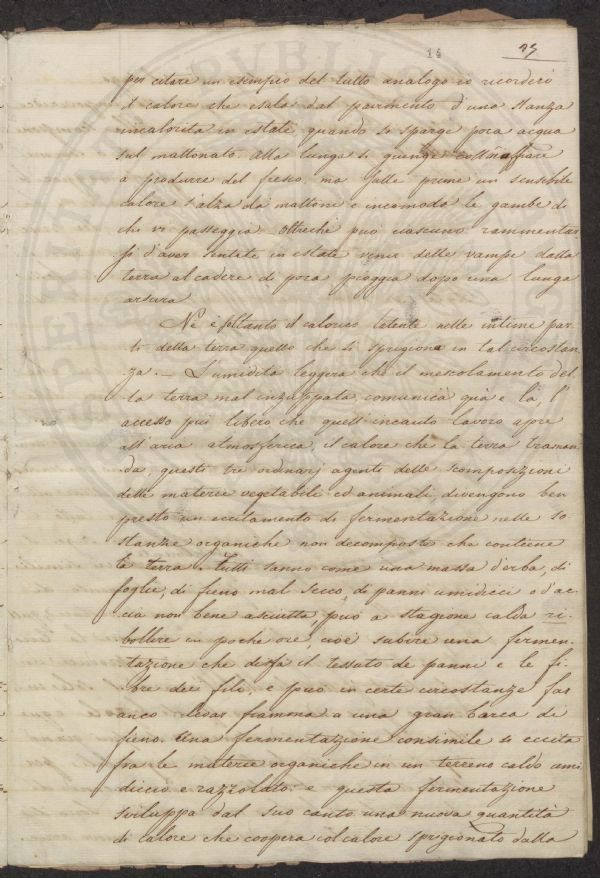 14 25
per citare un esempio del tutto analogo io ricorderò
il calore che esala dal pavimento d'una stanza
incalorita in estate quando si sparge poca acqua
sul mattonato. Alla lunga si giunge
a produrre del fresco, ma sulle prime un sensibile
calore s'alza da' mattoni e incomoda le gambe di
chi vi passeggia. Oltreché può ciascuno rammentar-
si d'aver sentite in estate venir delle vampe dalla
terra al cadere di poca pioggia dopo una lunga
arsura.
Né è soltanto il calorico latente nelle intime par-
ti della terra quello che si sprigiona in tal circostan-
za. — L'umidità leggera che il mescolamento del-
la terra mal inzuppata comunica quà e là, l'
accesso più libero che quell'incauto lavoro apre
all'aria atmosferica, il calore che la terra traman-
da, questi tre ordinarj agenti delle scomposizioni
delle materie vegetabili ed animali, divengono ben
presto un eccitamento di fermentazione nelle so-
stanze organiche non decomposte che contiene
la terra. Tutti sanno come una massa d'erba, di
foglie, di fieno mal secco, di panni umidicci o d'ac-
cia non bene asciutta, può a stagione calda ri-
bollire in poche ore, cioè subire una fermen-
tazione che disfa il tessuto de' panni e le fi-
bre dei fili, e può in certe circostanze far
anco levar fiamma a una gran barca di
fieno. Una fermentazione consimile si eccita
fra le materie organiche in un terreno caldo umi-
diccio e razzolato; e questa fermentazione
sviluppa dal suo canto una nuova quantità
di calore che coopera col calore sprigionato dalla